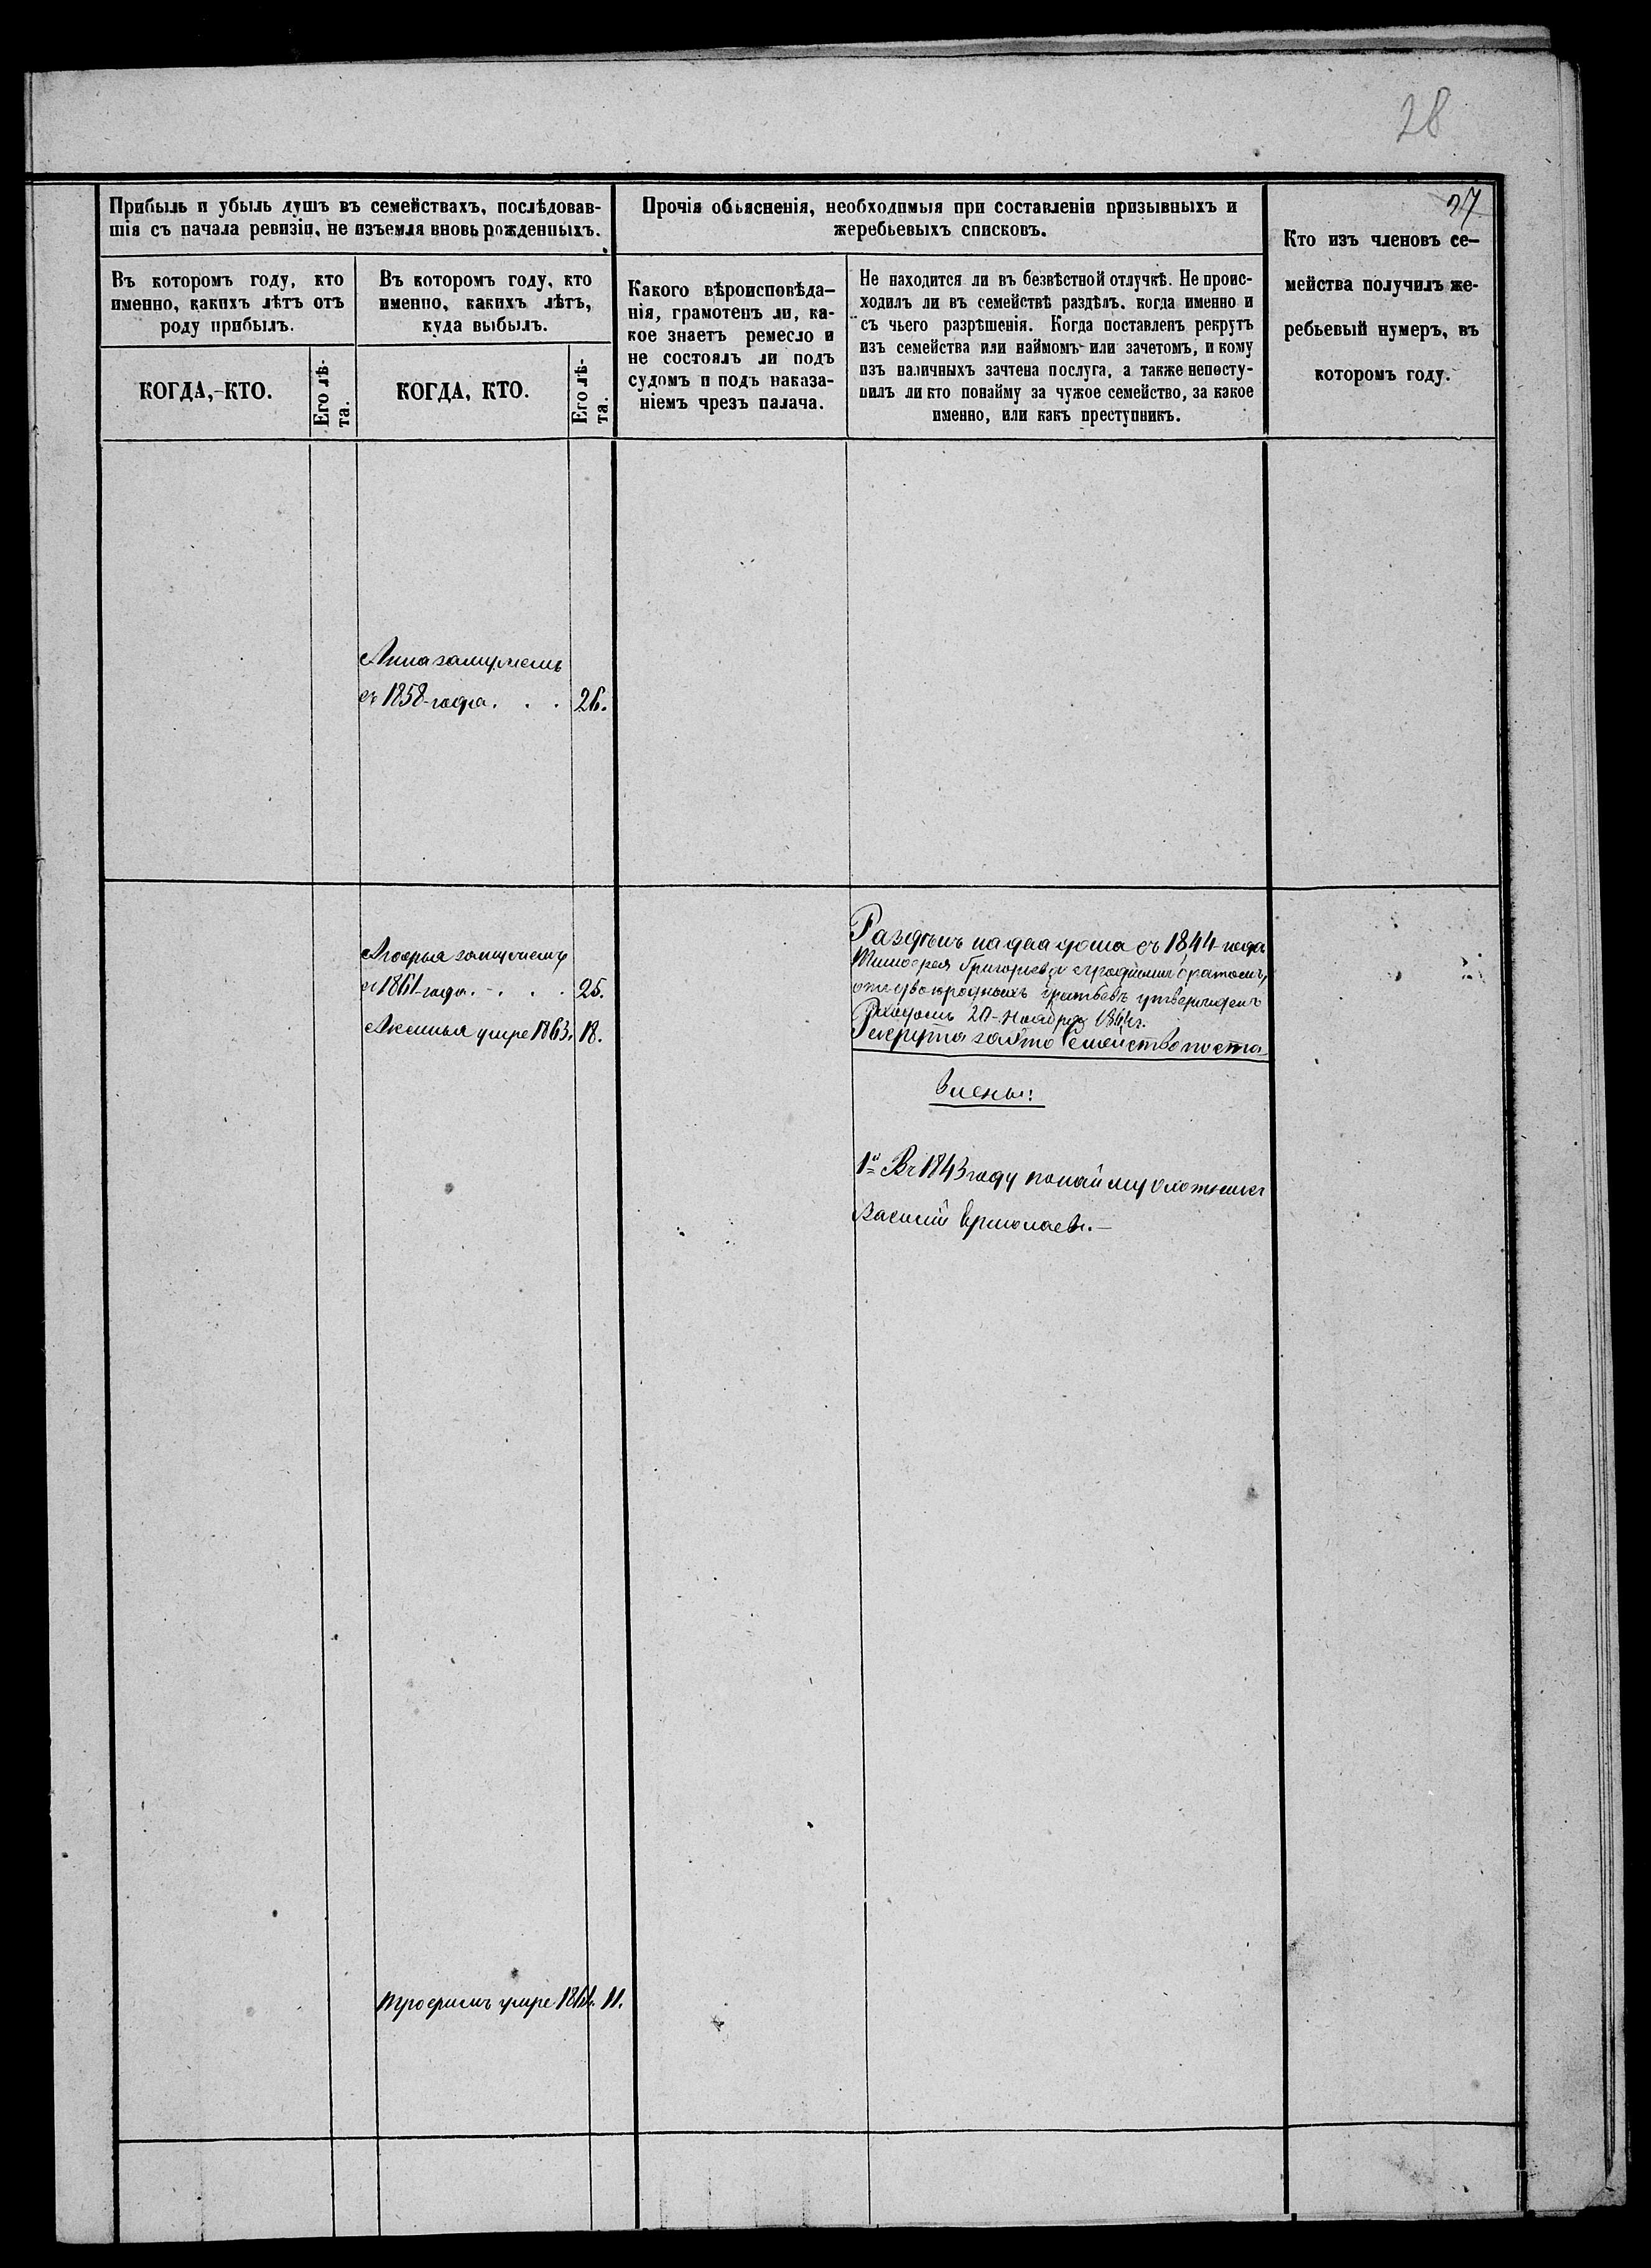 28
27
Прибыль и убыль душъ въ семействахъ, послѣдовав-
шія съ начала ревизіи, не изъемля вновь рожденныхъ.
Прочія объясненія, необходимыя при составленіи призывныхъ и
жеребьевыхъ списковъ.
Кто изъ членовъ се-
мейства получилъ же-
ребьевый нумеръ, въ
которомъ году.
Въ которомъ году, кто
именно, какихъ лѣтъ отъ
роду прибылъ.
Въ которомъ году, кто
именно, какихъ лѣтъ,
куда выбылъ.
Какого вѣроисповѣда-
нія, грамотенъ ли, ка-
кое знаетъ ремесло и
не состоялъ ли подъ
судомъ и подъ наказа-
ніемъ чрезъ палача.
Не находится ли въ безвѣстной отлучкѣ. Не проис-
ходилъ ли въ семействѣ раздѣлъ. когда именно и
съ чьего разрѣшенія. Когда поставленъ рекрутъ
изъ семейства или наймомъ или зачетомъ, и кому
изъ наличныхъ зачтена послуга, а также непосту-
пилъ ли кто понайму за чужое семейство, за какое
именно, или какъ преступникъ.
КОГДА, КТО.
Его лѣ-
та.
КОГДА, КТО.
Его лѣ-
та.
Анна замужемъ
съ 1858 года. . . 26.
замужемъ
съ 1861 года. . . . 25.
Аксинья умре 1863. 18.
Раздѣлъ на два дома съ 1844 года
Григорьевъ съ роднымъ братомъ,
отъ двоюродныхъ братьевъ утвержденъ
20 Ноября 1844г.
Рекрута за это Семейство поста-
влены:
1й Въ 1843 году по найму охотникъ
Василій Ермолаевъ.—
Трофимъ умре 1861. 11.